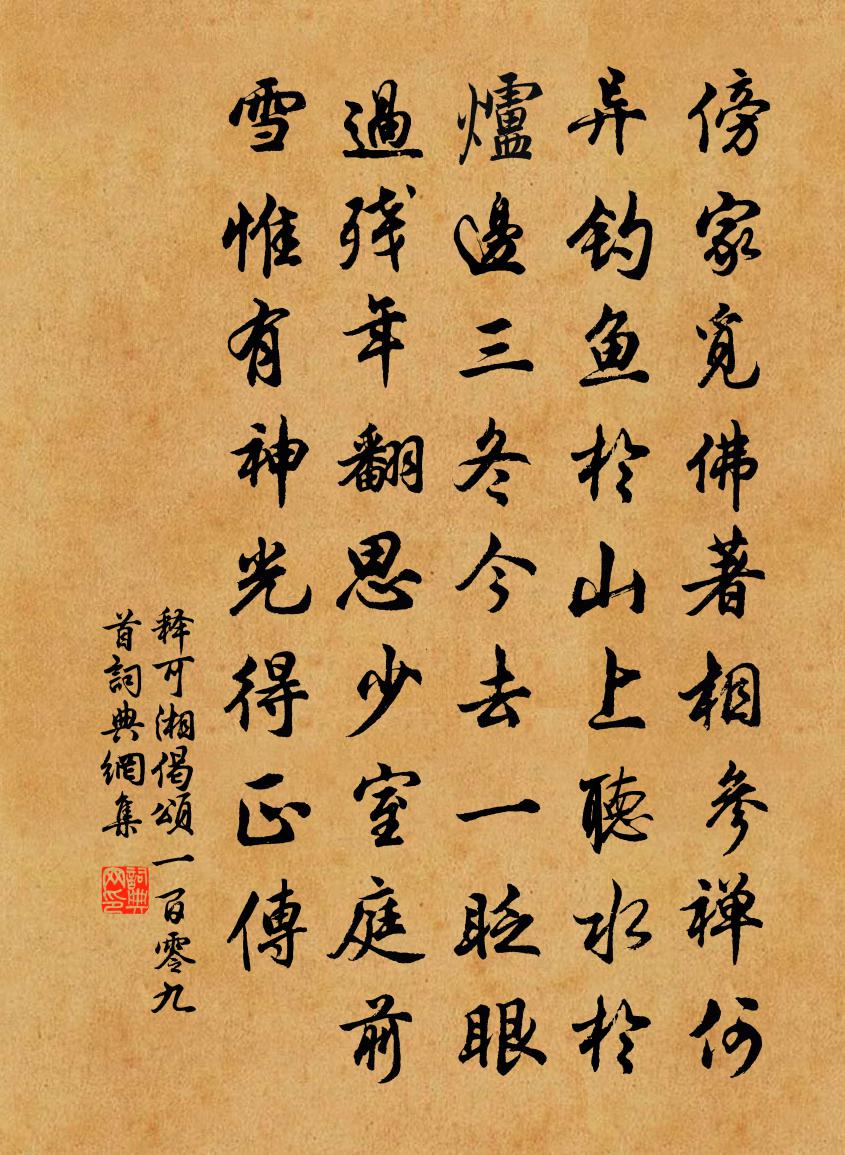 傍家覓佛著相參禅何
异钓鱼於山上聽水於
爐邊三冬今去一眨眼
過残年翻思少室庭前
雪惟有神光得正傳
释可湘偈頌一百零九
首詞典網集
詞典网印